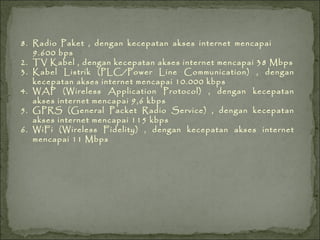 8. Radio Paket , dengan kecepatan akses internet mencapai
9.600 bps
2. TV Kabel , dengan kecepatan akses internet mencapai 38 Mbps
3. Kabel Listrik (PLC/Power Line Communication) , dengan
kecepatan akses internet mencapai 10.000 kbps
4. WAP (Wireless Application Protocol) , dengan kecepatan
akses internet mencapai 9,6 kbps
5. GPRS (General Packet Radio Service) , dengan kecepatan
akses internet mencapai 115 kbps
6. WiFi (Wireless Fidelity) , dengan kecepatan akses internet
mencapai 11 Mbps